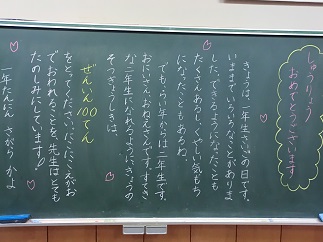 しゅうりょう
おめでとうございます
きょうは、一年生さいごの日です。
いままでいろいろなことがありま
した。できるようになったことも
たくさんあるし、くやしい気もち
になったこともあるね。
でも、らい年からは二年生です。
おにいさん、おねえさんです。すてき
な二年生に入れるように、きょうの
そつぎょうしきは、
ぜんいん100てん
をとってください。にこにこえがお
でおわれることを、先生はとても
たのしみにしています!
一年たんにん さがら かよ